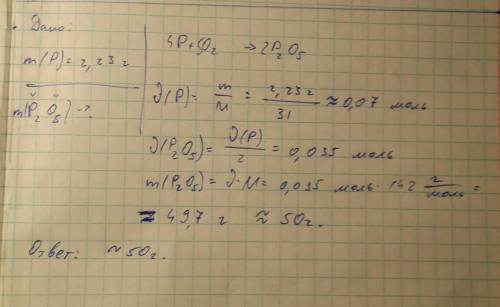 Дано:
m(P) = 2,23 г
m(P₂O₅) - ?
V V
4P + 5O₂ → 2P₂O₅
ν(P) = m/M = 2,23 г/31 ≈ 0,07 моль
ν(P₂O₅) = ν(P)/2 = 0,035 моль
m(P₂O₅) = ν·M = 0,035 моль · 142 г/моль =
≈ 49,7 г ≈ 50 г.
Ответ: ≈ 50 г.